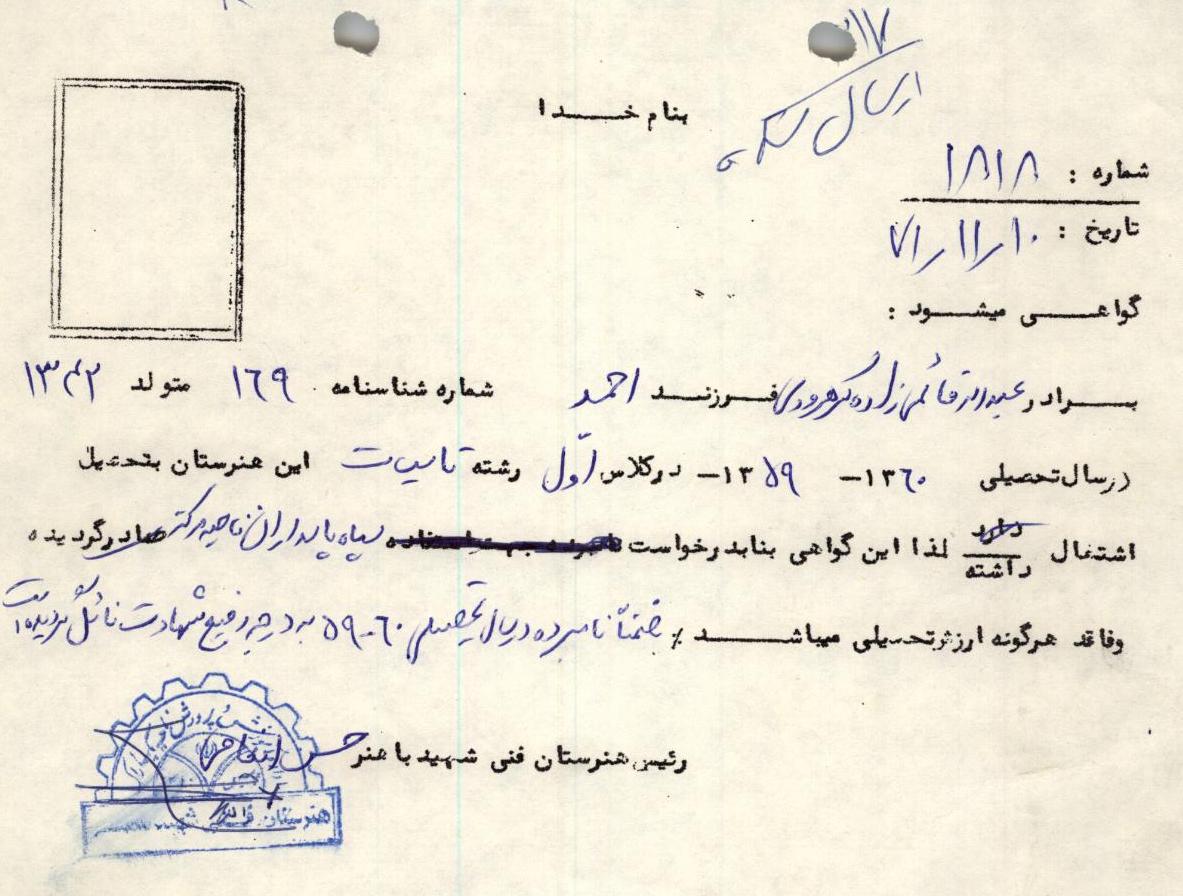 ۱۷
ارسال شد
بنام خدا
شماره : ۱۸۱۸
تاریخ : ۷۱/۱۱/۱۰
گواهی میشود :
برادر عبداله قائمی زاده فرزند احمد شماره شناسنامه ۱۶۹ متولد ۱۳۴۲
درسال تحصیلی ۱۳۶۰- ۱۳۵۹- درکلاس اوّل رشته تاسیسات این هنرستان بتحصیل
اشتغال دارد
داشته لذا این گواهی بنابدرخواست سپاه پاسداران ناحیه مرکز صادرگردیده
وفاقد هرگونه ارزش تحصیلی میباشد ٪ ضمناً نامبرده درسال تحصیلی ۶۰-۵۹ به درجه رفیع شهادت نائل گردیده است
رئیس هنرستان فنی شهید باهنر حسن
هنرستان فنی شهید